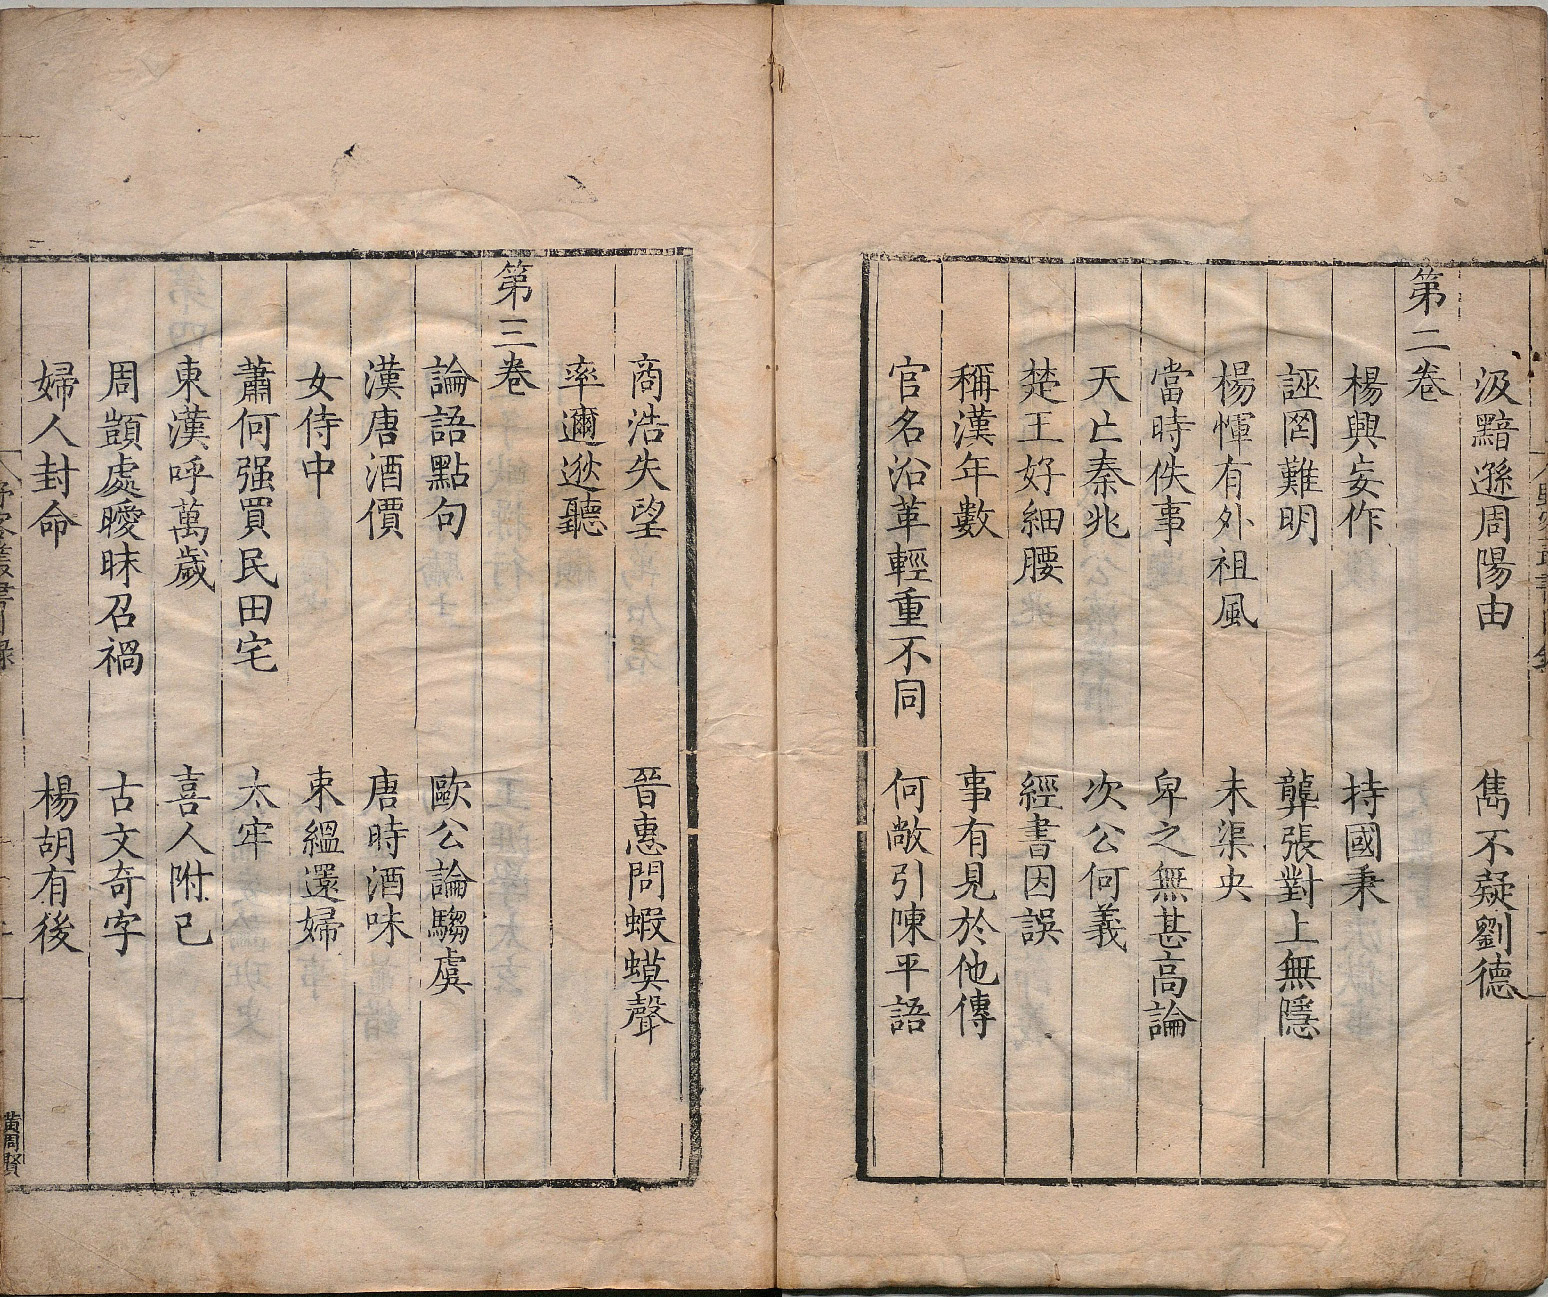 汲黯遜周陽由　雋不疑劉德
第二卷
楊興妄作　持國秉
誣罔難明　龔張對上無隱
楊惲有外祖風　未渠央
當時佚事　卑之無甚高論
天亡秦兆　次公何義
楚王好細腰　經書因誤
稱漢年數　事有見於他傳
官名沿革輕重不同　何敞引陳平語
商浩失望　晉惠問蝦蟆聲
率邇逖聽
第三卷
論語點句　歐公論騶虞
漢唐酒價　唐時酒味
女侍中　束縕還婦
蕭何强買民田宅　太牢
東漢呼萬歲　喜人附己
周顗處曖昧召禍　古文奇字
婦人封命　楊胡有後
野客叢書目錄
黃周賢